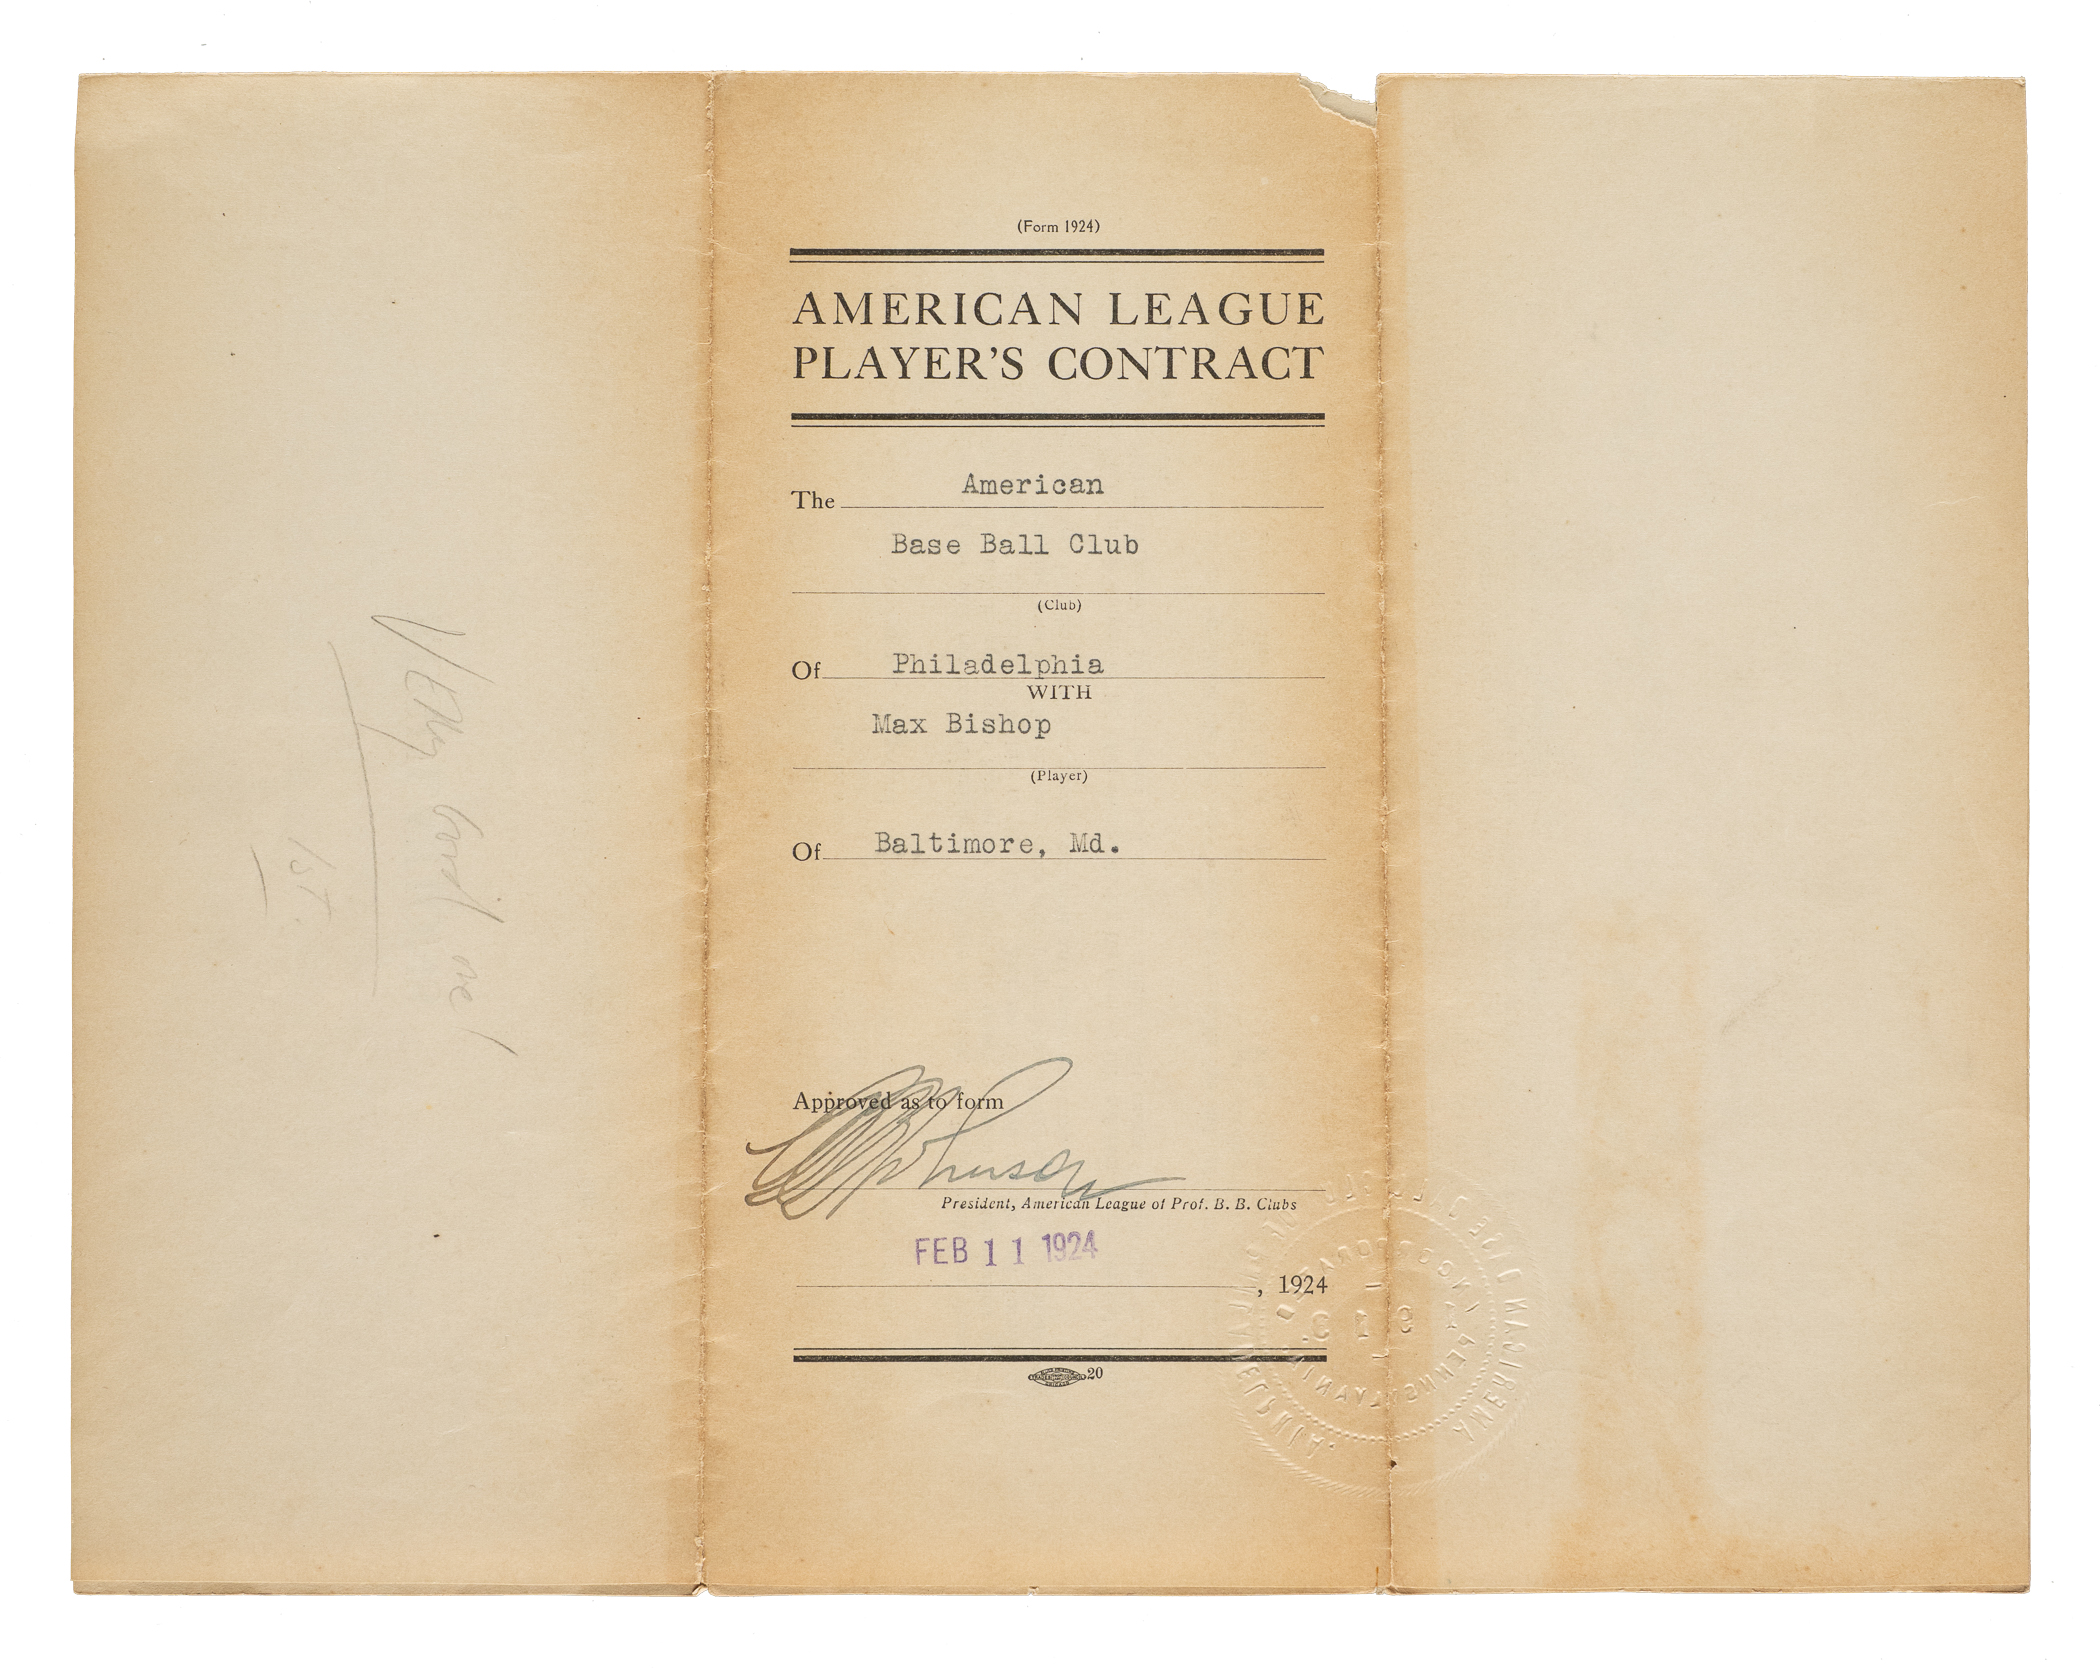 (Form 1924)
AMERICAN LEAGUE
PLAYER'S CONTRACT
The American
Base Ball Club
(Club)
Of Philadelphia
WITH
Max Bishop
(Player)
Of Baltimore, Md.
Approved as to form
BBJohnson
President, American League of Prof. B. B. Clubs
FEB 11 1924
, 1924
20
Very good one!
1st.